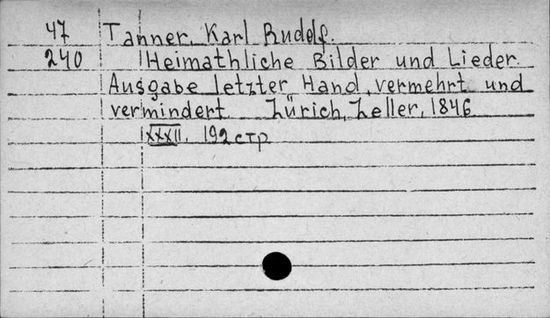 47 Tanner, Karl Rudolf.
240 Heimathliche Bilder und Lieder.
Ausgabe letzter Hand, vermehrt und
vermindert. Zürich, Zeller, 1846
XXXII, 192 стр